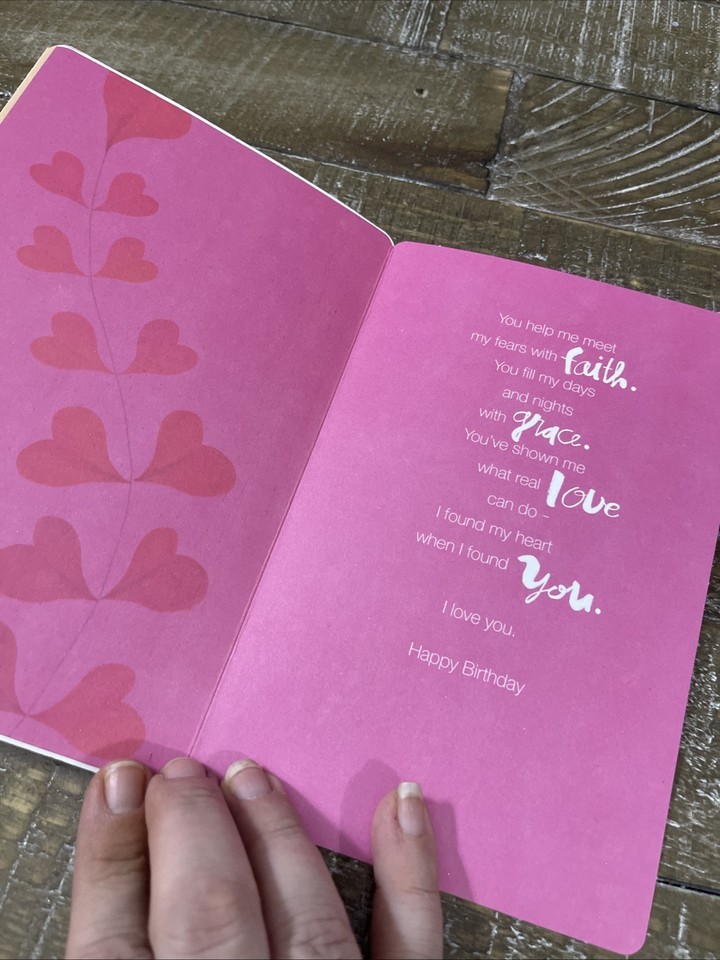 You help me meet
my fears with faith.
You fill my days
and nights
with grace.
You've shown me
what real love
can do –
I found my heart
when I found you.
I love you.
Happy Birthday